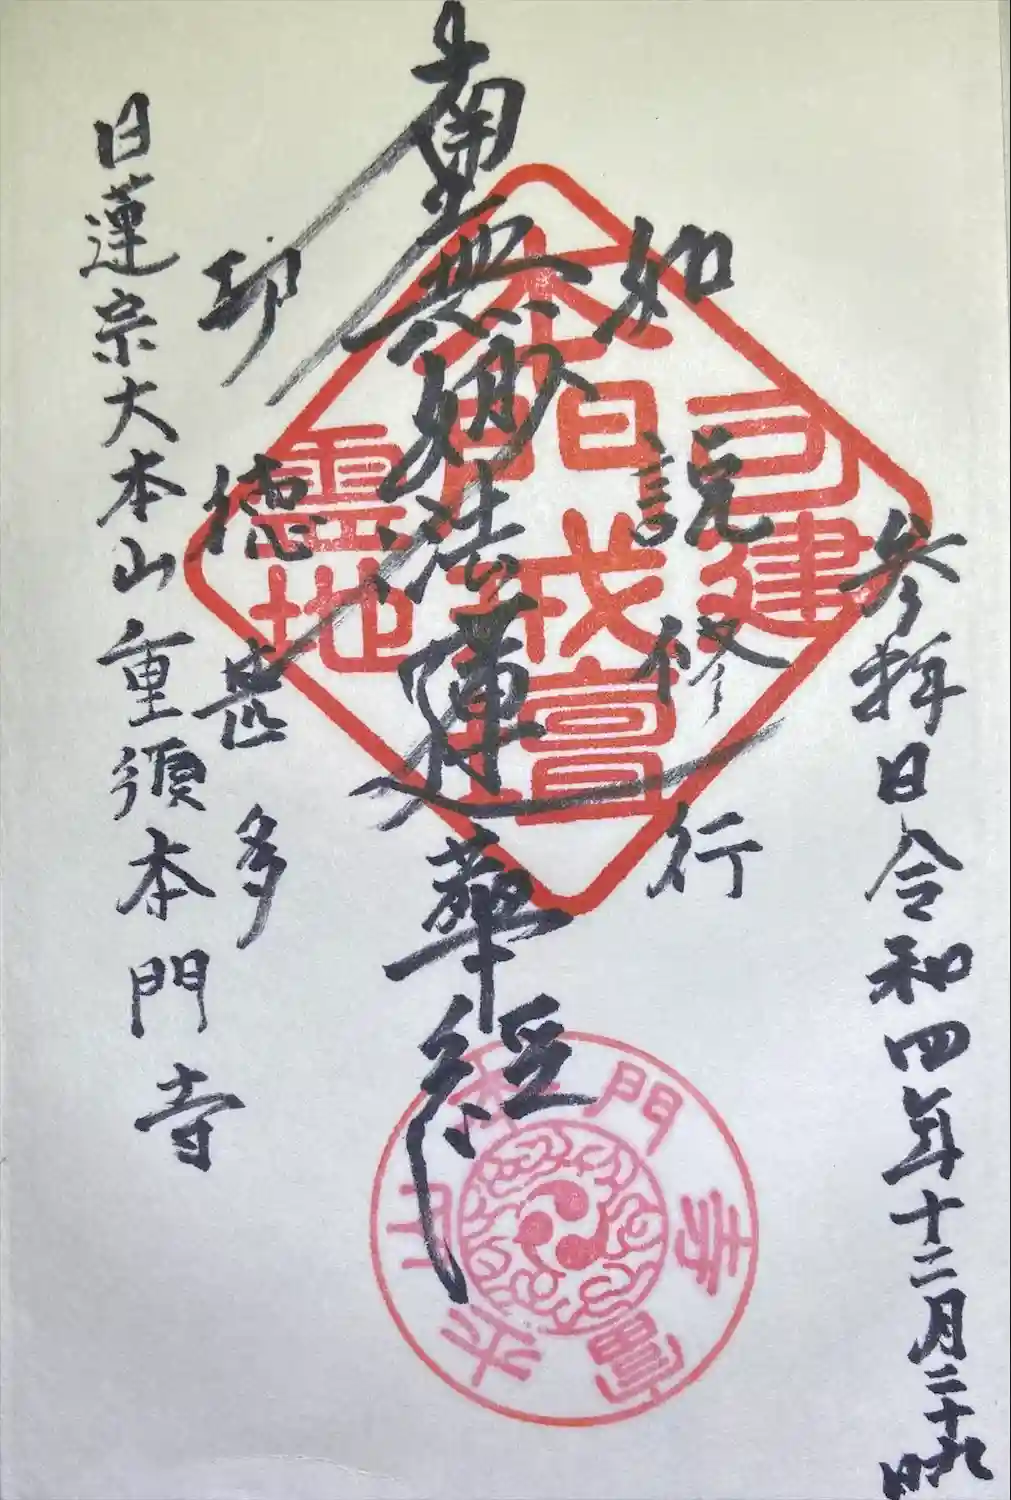 参拝日令和四年十二月二十九日
如説修行
南無妙法蓮華経
功徳甚多
日蓮宗大本山重須本門寺
可建
本門戒壇
霊地
本門寺